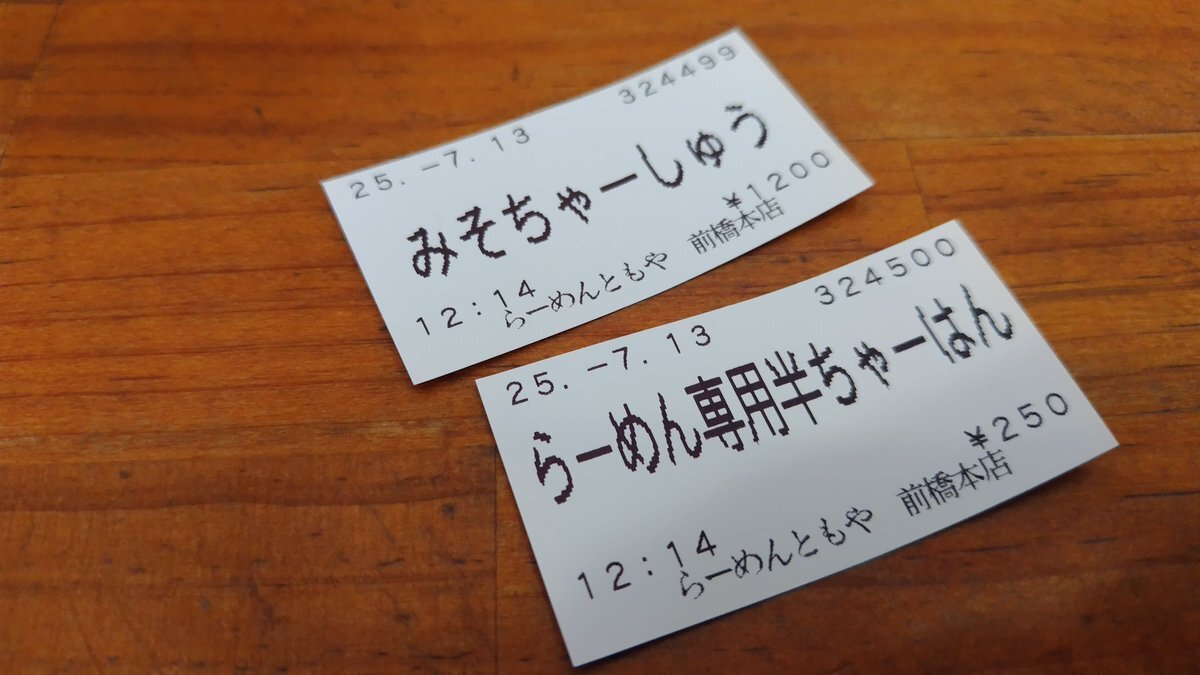 324499
25.-7.13
みそちゃーしゅう
¥1200
12:14
らーめんともや 前橋本店
324500
25.-7.13
らーめん専用半ちゃーはん
¥250
12:14
らーめんともや 前橋本店